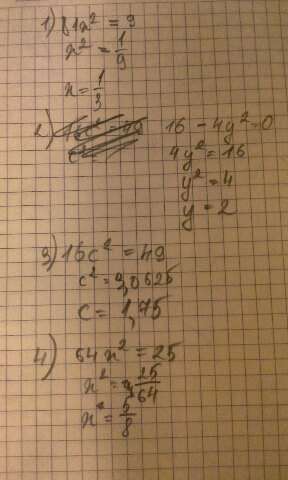 1) 81x² = 9
x² = 1/9
x = 1/3
2) 16 - 4y² = 0
4y² = 16
y² = 4
y = 2
3) 16c² = 49
c² = 3,0625
c = 1,75
4) 64x² = 25
x² = 25/64
x² = 5/8